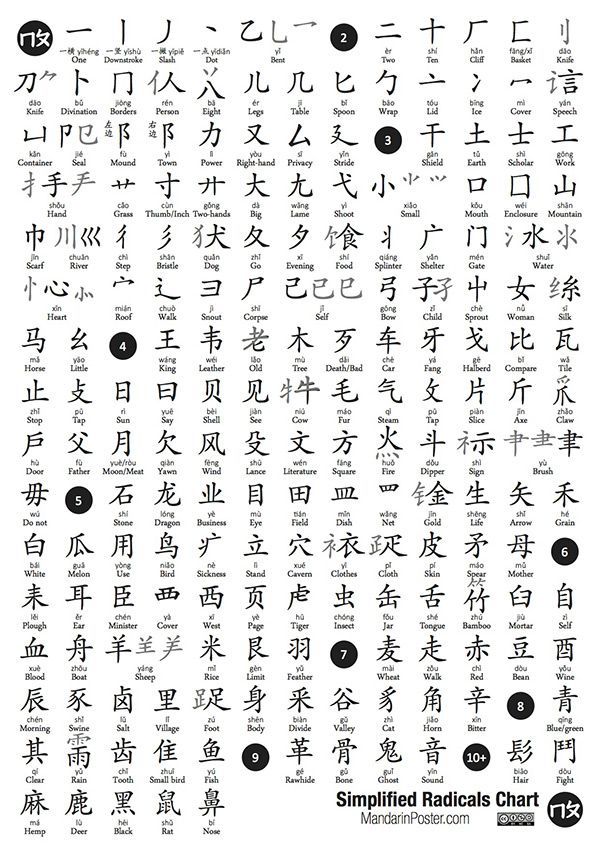 一 丨 丿 丶 乙乚乛 2 二 十 厂 匚 刂
一横 yīhéng 一竖 yīshù 一撇 yīpiě 一点 yīdiǎn yǐ èr shí hǎn fāng/xǐ
One Downstroke Slash Dot Bent Two Ten Cliff Basket Knife
刀 卜 冂 亻人 八 儿 几 匕 勹 亠 冫 冖 讠言
dāo bǔ jiōng rén bā ér jī bǐ bāo tóu bīng mì yán
Knife Divination Borders Person Eight Legs Table Spoon Wrap Lid Ice Cover Speech
凵 卩㔾 左边 阝 右边 阝 力 又 厶 廴 3 干 土 士 工
kǎn jié fù yì lì yòu sī yǐn gān tǔ shì gōng
Container Seal Mound Town Power Right-hand Privacy Stride Shield Earth Scholar Work
扌手龵 艹 寸 廾 大 尢 弋 小 口 囗 山
shǒu cǎo cùn gǒng dà wāng yì xiǎo kǒu wéi shān
Hand Grass Thumb/Inch Two-hands Big Lame Shoot Small Mouth Enclosure Mountain
巾 川巛 彳 彡 犭犬 夂 夕 饣食 丬 广 门 氵水氺
jīn chuān chì shān quǎn zhǐ xī shí qiáng yǎn mén shuǐ
Scarf River Step Bristle Dog Go Evening Food Splinter Shelter Gate Water
忄心⺗ 宀 辶 彐 尸 己已巳 弓 子 屮 女 纟糸
xīn mián chuò xuě shī jǐ gōng zǐ chè nǚ sī
Heart Roof Walk Snout Corpse Self Bow Child Sprout Woman Silk
马 幺 4 王 韦 老 木 歹 车 牙 戈 比 瓦
mǎ yāo wáng wéi lǎo mù dǎi chē yá gē bǐ wǎ
Horse Little King Leather Old Tree Death/Bad Car Fang Halberd Compare Tile
止 攴 日 曰 贝 见 牛 毛 气 攵 片 斤 爪
zhǐ pū rì yuē bèi jiàn niú máo qì pū piàn jīn zhǎo
Stop Tap Sun Say Shell See Cow Fur Steam Tap Slice Axe Claw
户 父 月 欠 风 殳 文 方 火灬 斗 礻示 肀 聿
hù fù yuè/ròu qiàn fēng shū wén fāng huǒ dǒu shì yù
Door Father Moon/Meat Yawn Wind Lance Literature Square Fire Dipper Sign Brush
毋 5 石 龙 业 目 田 皿 罒 钅金 生 矢 禾
wú shí lóng yè mù tián mǐn wǎng jīn shēng shǐ hé
Do not Stone Dragon Business Eye Field Dish Net Gold Life Arrow Grain
白 瓜 用 鸟 疒 立 穴 衤衣 疋 皮 矛 母 6
bái guā yòng niǎo nè lì xué yī pǐ pí máo mǔ
White Melon Use Bird Sickness Stand Cavern Clothes Cloth Skin Spear Mother
耒 耳 臣 覀 西 页 虍 虫 缶 舌 竹 臼 自
lěi ěr chén yà xī yè hū chóng fǒu shé zhú jiù zì
Plough Ear Minister Cover West Page Tiger Insect Jar Tongue Bamboo Mortar Self
血 舟 羊 米 艮 羽 7 麦 走 赤 豆 酉
xuè zhōu yáng mǐ gèn yǔ mài zǒu chì dòu yǒu
Blood Boat Sheep Rice Limit Feather Wheat Walk Red Bean Wine
辰 豕 卤 里 足 身 釆 谷 豸 角 辛 8 青
chén shǐ lǔ lǐ zú shēn biàn gǔ zhì jiǎo xīn qīng
Morning Swine Salt Village Foot Body Divide Valley Cat Horn Bitter Blue/green
其 雨 齿 隹 鱼 9 革 骨 鬼 音 10+ 髟 鬥
qí yǔ chǐ zhuī yú gé gǔ guǐ yīn biāo dòu
Clear Rain Tooth Small bird Fish Rawhide Bone Ghost Sound Hair Fight
麻 鹿 黑 鼠 鼻
má lù hēi shǔ bí
Hemp Deer Black Rat Nose
Simplified Radicals Chart
MandarinPoster.com